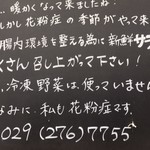 暖かくなって来ましたね!
かし花粉症の季節がやって来
腸内環境を整える為に新鮮サラ
くさん召し上がって下さい!
冷凍野菜は、使っていません
なみに、私も花粉症です。
029(276)7755